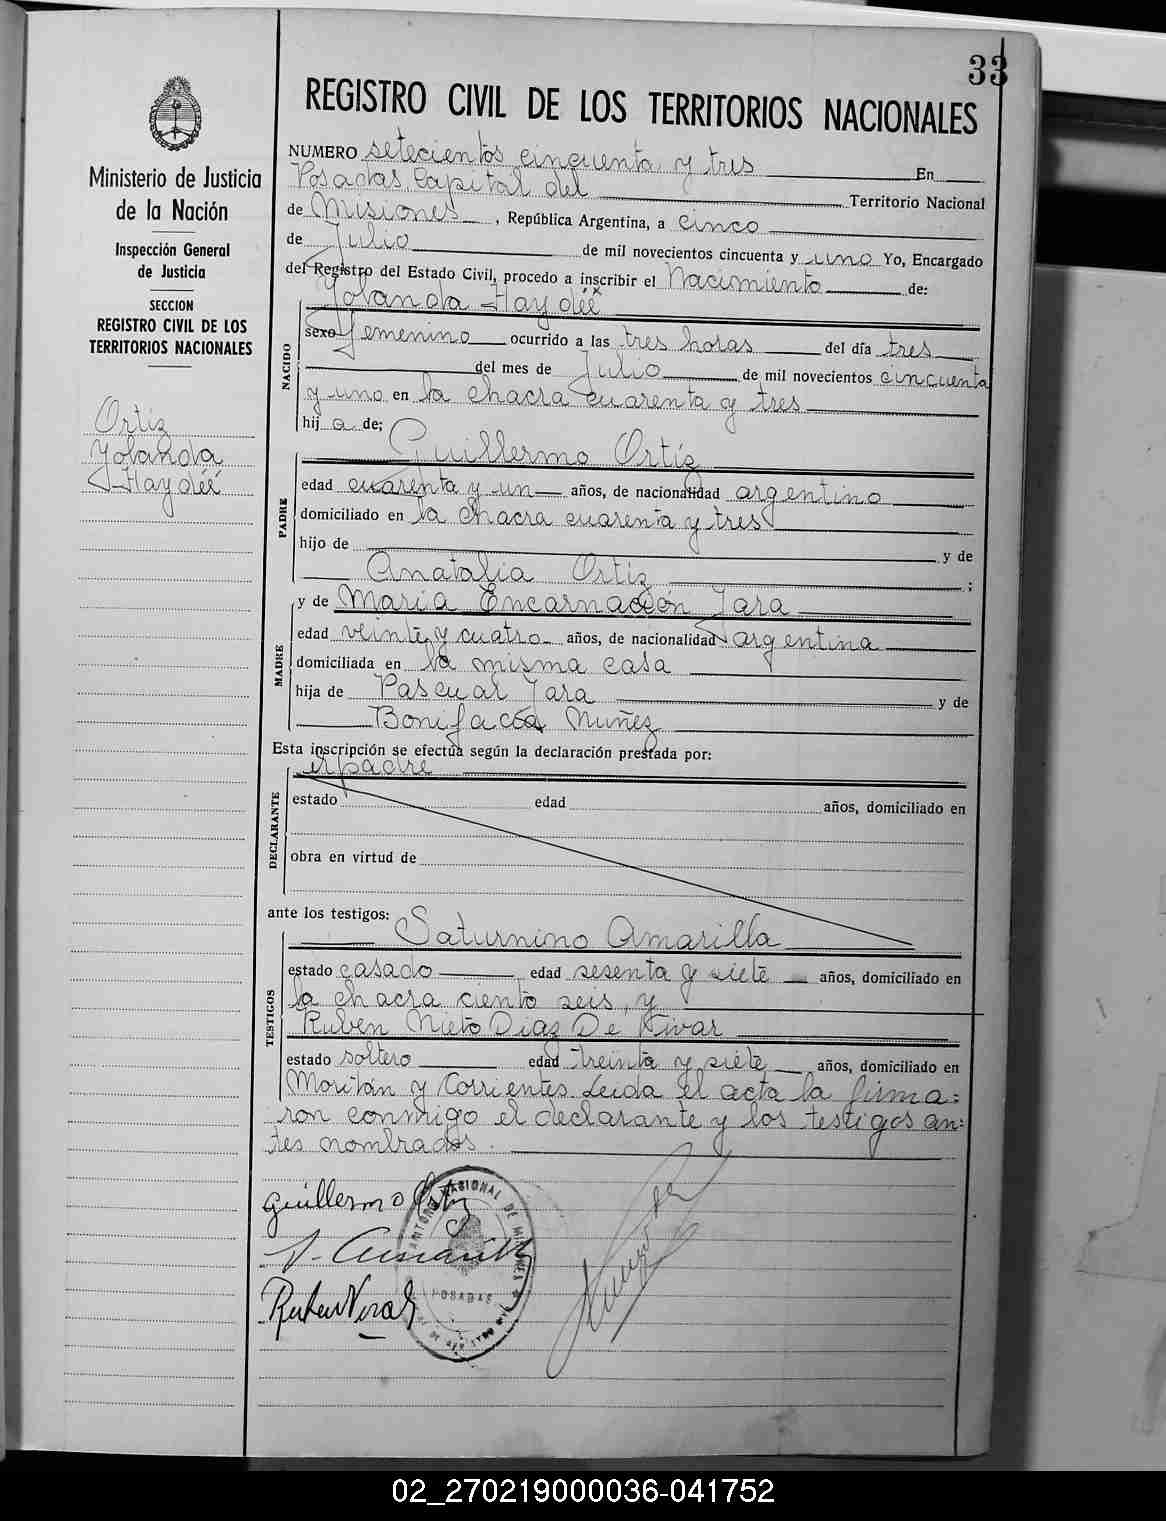 33
REGISTRO CIVIL DE LOS TERRITORIOS NACIONALES
Ministerio de Justicia
de la Nación
Inspección General
de Justicia
SECCION
REGISTRO CIVIL DE LOS
TERRITORIOS NACIONALES
Ortiz
Yolanda
Haydéé
NUMERO setecientos cincuenta y tres En
Posadas, Capital del Territorio Nacional
de Misiones, República Argentina, a cinco
de Julio de mil novecientos cincuenta y uno Yo, Encargado
del Registro del Estado Civil, procedo a inscribir el Nacimiento de:
Yolanda Haydéé
NACIDO
sexo femenino ocurrido a las tres horas del día tres
del mes de Julio de mil novecientos cincuenta
y uno en la chacra cuarenta y tres
hij a de;
Guillermo Ortíz
PADRE
edad cuarenta y un años, de nacionalidad argentino
domiciliado en la chacra cuarenta y tres
hijo de y de
Anatalia Ortiz ;
y de María Encarnación Jara
MADRE
edad veinte y cuatro años, de nacionalidad argentina
domiciliada en la misma casa
hija de Pascual Jara y de
Bonifacia Nuñez
Esta inscripción se efectúa según la declaración prestada por:
el padre
DECLARANTE
estado edad años, domiciliado en
obra en virtud de
ante los testigos:
Saturnino Amarilla
TESTIGOS
estado casado edad sesenta y siete años, domiciliado en
la chacra ciento seis, y
Ruben Nieto Diaz De Vivar
estado soltero edad treinta y siete años, domiciliado en
Moritán y Corrientes. Leida el acta la firma=
ron conmigo el declarante y los testigos an=
tes nombrados.
Guillermo Ortiz
S. Amarilla
POSADAS
02_270219000036-041752